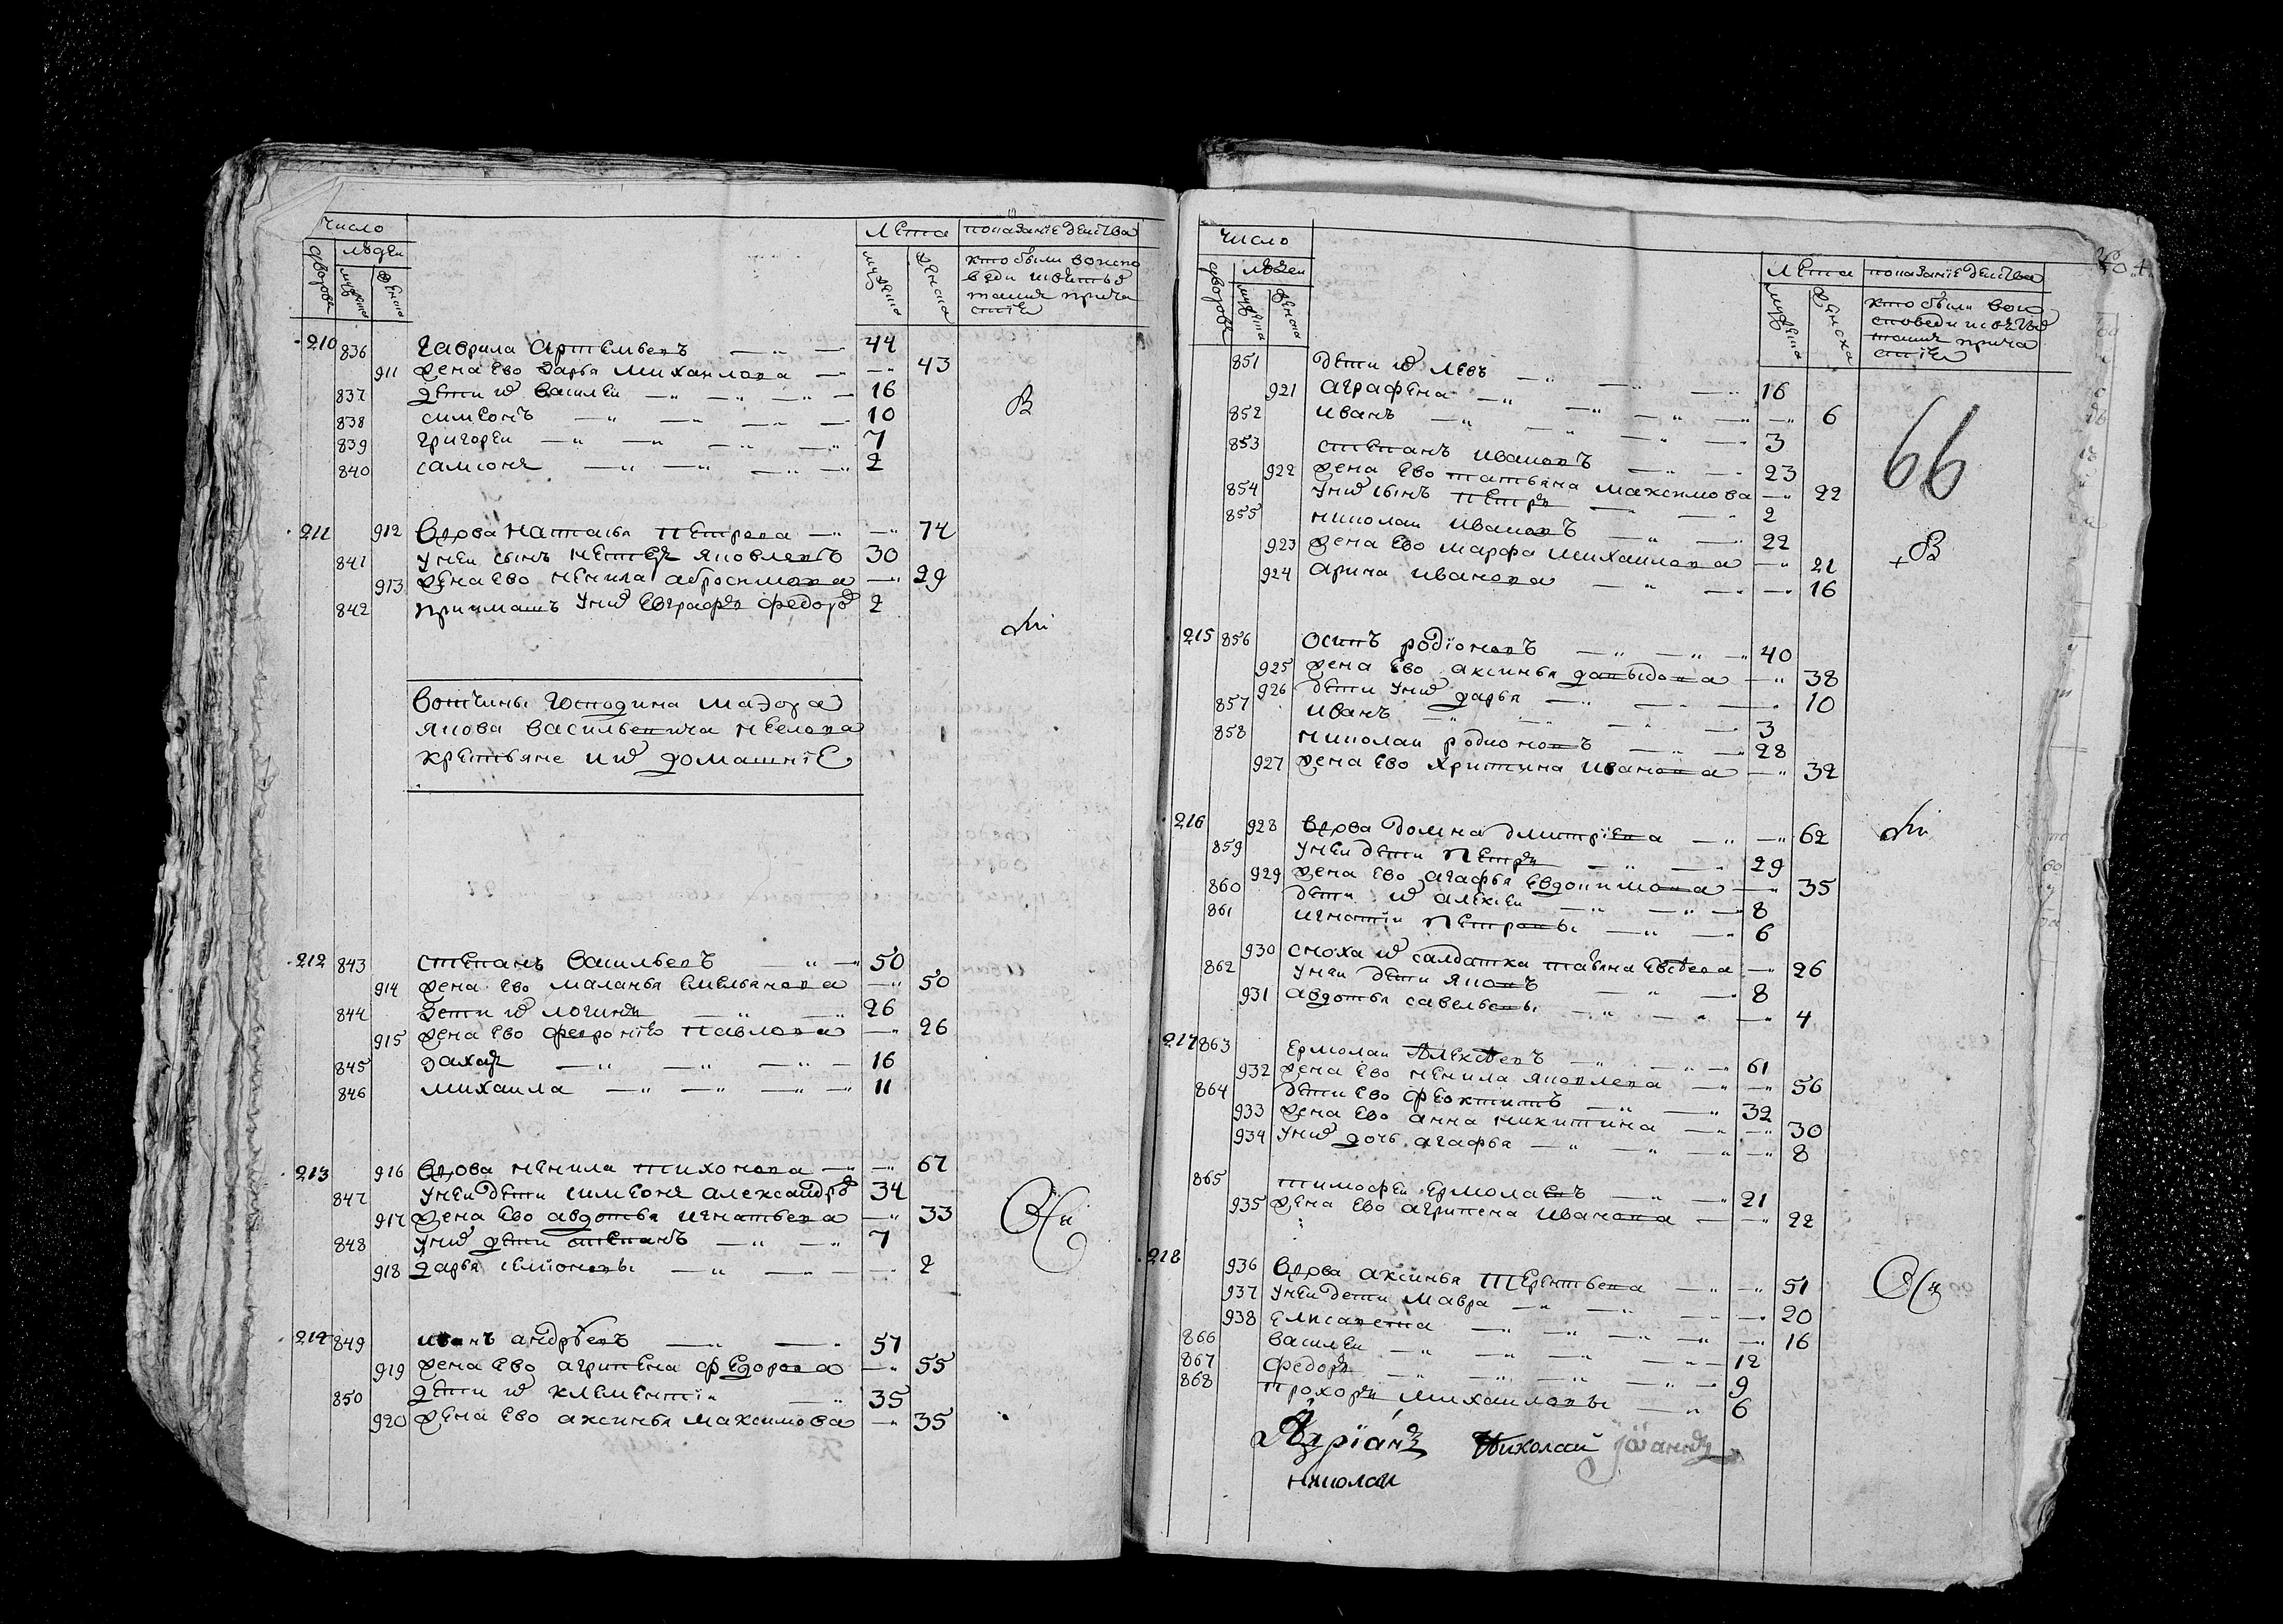 число
людеи
дворовъ
мужеска
женска
лета
мужеска
женска
показание деиства
кто были во испо
веди и светыхъ
таинъ прича
стие
210 836 гаврила артемьевъ 44
911 жена ево дарья михаилова 43
837 дети их василеи 16
838 симеонъ 10
839 григореи 7
840 самсонъ 2
211 912 вдова наталья петрова 74
841 у неи сынъ нестеръ яковлевъ 30
913 жена ево ненила абросимова 29
842 приимашъ у них евграфъ федоров 2
вотчины господина маэора
якова васильевича неелова
крестьяне и их домашние
212 843 степанъ васильевъ 50
914 жена ево маланья емельянова 50
844 дети их логинъ 26
915 жена ево феврония павлова 26
845 захаръ 16
846 михаила 11
213 916 вдова ненила тихонова 67
847 у неи дети симеонъ александров 34
917 жена ево авдотья игнатьева 33
848 у них дети степанъ 7
918 дарья семионовы 2
214 849 иванъ андреевъ 57
919 жена ево агрипена федорова 55
850 дети их клементии 35
920 жена ево аксинья максимова 35
число
людеи
дворовъ
мужеска
женска
лета
мужеска
женска
показание деиства
кто были во ис
споведи и светых
таинъ прича
стие
851 дети их левъ 16
921 аграфена 6
852 иванъ 3
853 степанъ ивановъ 23
922 жена ево татьяна максимова 22
854 у них сынъ петръ 2
855 николаи ивановъ 22
923 жена ево марфа михаилова 21
924 арина иванова 16
66
215 856 осипъ родионовъ 40
925 жена ево аксинья давыдова 38
926 дети у них дарья 10
857 иванъ 3
858 николаи родионовъ 28
927 жена ево христина иванова 32
216 928 вдова домна дмитриева 62
859 у неи дети петръ 29
929 жена ево агафья евдокимова 35
860 дети их алексеи 8
861 игнатии петровы 6
930 сноха их салдатка татьяна евсеева 26
862 у неи дети яковъ 8
931 авдотья савельевы 4
217 863 ермолаи алексеевъ 61
932 жена ево ненила яковлева 56
864 дети ево феоктистъ 32
933 жена ево анна никитина 30
934 у них дочь агафья 8
865 тимофеи ермолаевъ 21
935 жена ево агрипена иванова 22
218 936 вдова аксинья терентьева 51
937 у неи дети мавра 20
938 елисавета 16
866 василеи 12
867 федоръ 9
868 прохоръ михаиловы 6
Адрианъ Николай Иоаннъ
николаи